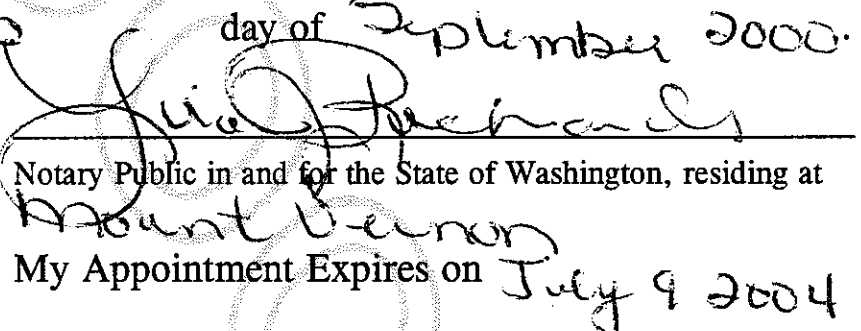 day of September 2000.
Richards
Notary Public in and for the State of Washington, residing at
Mount Vernon
My Appointment Expires on July 9 2004